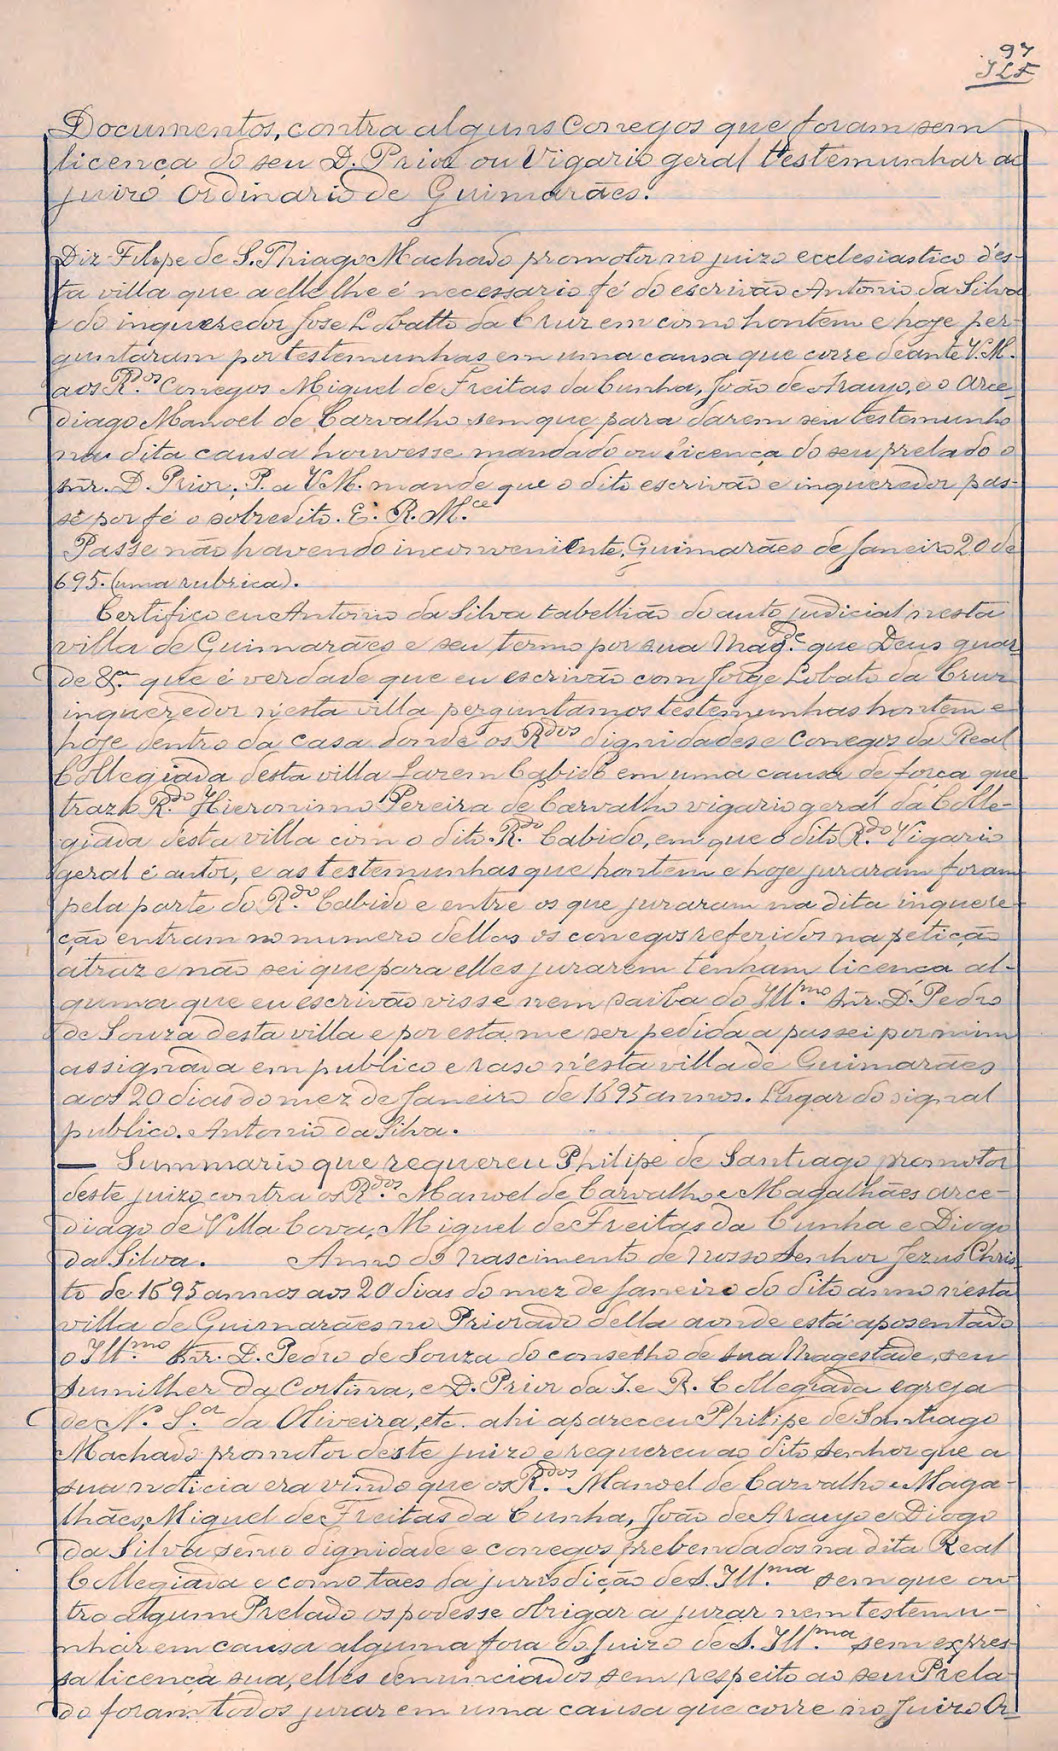 97
JLF
Documentos, contra alguns Conegos que foram sem
licença do seu D. Prior ou Vigario geral testemunhar ao
juizo Ordinario de Guimarães.
Diz Filipe de S. Thiago Machado promotor no juizo ecclesiastico d'es-
ta villa que a elle lhe é necessario fé do escrivão Antonio da Silva
e do inqueredor Jose Lobatto da Cruz em como hontem e hoje per-
guntaram por testemunhas em uma causa que corre deante V. M.
aos R.dos Conegos Miguel de Freitas da Cunha, João de Araujo, e o Arce-
diago Manoel de Carvalho sem que para darem seu testemunho
na dita causa houvesse mandado ou licença do seu prelado o
Snr. D. Prior, P. a V. M. mande que o dito escrivão e inqueredor pas-
se por fé o sobredito. E. R. M.ce
Passe não havendo inconveniente. Guimarães de Janeiro 20 de
695. (uma rubrica).
Certifico eu Antonio da Silva tabellião do auto judicial nesta
villa de Guimarães e seu termo por sua Mag.e que Deus guar-
de &.a que é verdade que eu escrivão com Jorge Lobato da Cruz
inqueredor n'esta villa perguntamos testemunhas hontem e
hoje dentro da casa donde os R.dos dignidades e Conegos da Real
Collegiada desta villa fazem Cabido em uma causa de força que
traz o R.do Hieronimo Pereira de Carvalho vigario geral da Colle-
giada desta villa com o dito R.do Cabido, em que o dito R.do Vigario
geral é autor, e as testemunhas que hontem e hoje juraram foram
pela parte do R.do Cabido e entre os que juraram na dita inquere-
ção entram no numero dellas os conegos referidos na petição
atraz e não sei que para elles jurarem tenham licença al-
guma que eu escrivão visse nem saiba do Ill.mo Snr. D. Pedro
de Souza desta villa e por esta me ser pedida a passei por mim
assignada em publico e raso n'esta villa de Guimarães
aos 20 dias do mez de Janeiro de 1695 annos. Lugar do signal
publico. Antonio da Silva.
— Summario que requereu Philipe de Santiago promotor
deste juizo contra os R.dos Manoel de Carvalho e Magalhães arce-
diago de Villa Cova, Miguel de Freitas da Cunha e Diogo
da Silva. Anno do Nascimento de Nosso Senhor Jezus Chris-
to de 1695 annos aos 20 dias do mez de Janeiro do dito anno n'esta
villa de Guimarães no Priorado della aonde está aposentado
o Ill.mo Snr. D. Pedro de Souza do conselho de sua Magestade, seu
Sumilher da Cortina, e D. Prior da I. e R. Collegiada egreja
de N. S.a da Oliveira, etc. ahi apareceu Philipe de Santiago
Machado promotor deste juizo e requereu ao dito Senhor que a
sua noticia era vindo que os R.dos Manoel de Carvalho e Maga-
lhães, Miguel de Freitas da Cunha, João de Araujo e Diogo
da Silva sendo dignidade e conegos prebendados na dita Real
Collegiada e como taes da jurisdição de S. Ill.ma sem que ou-
tro algum Prelado os podesse obrigar a jurar nem testemu-
nhar em causa alguma fora do Juizo de S. Ill.ma sem expres-
sa licença sua, elles denunciados sem respeito ao seu Prela-
do foram todos jurar em uma causa que corre no Juizo Or-